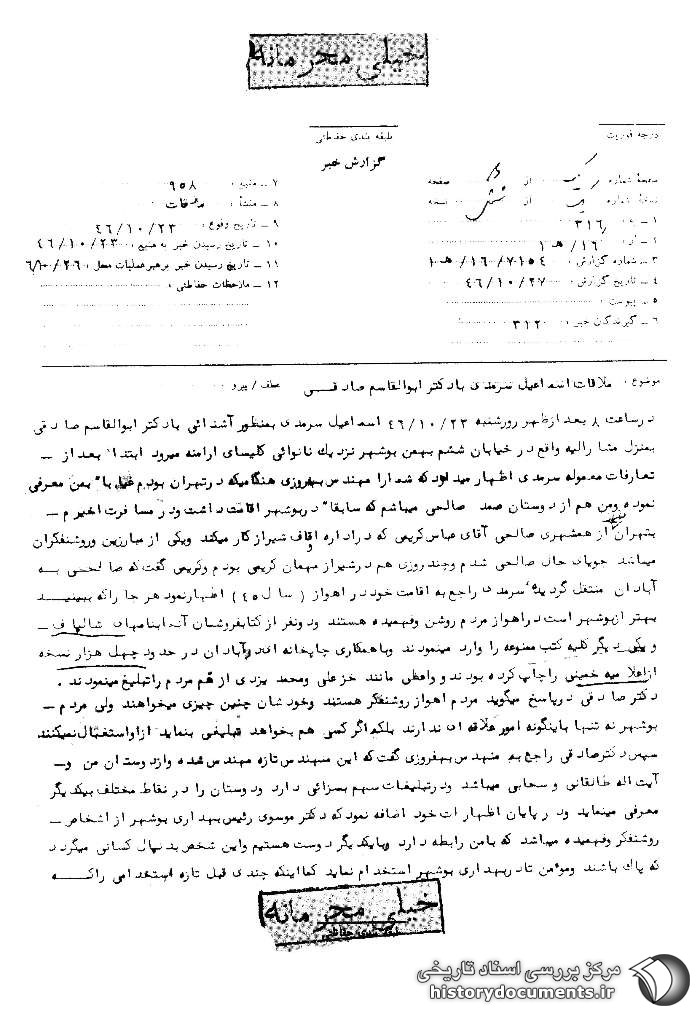 خیلی محرمانه
درجه فوریت
طبقه بندی حفاظتی
گزارش خبر
صفحهٔ شماره یک از دو صفحه
نسخهٔ شماره یک از شش نسخه
۱ـ ۳۱۶
۲ـ ۱۶/ هـ ۱
۳ـ شماره گزارش : ۷۱۵۴ /۱۶/ هـ ۱
۴ـ تاریخ گزارش : ۴۶/۱۰/۲۷
۵ـ پیوست :
۶ـ گیرندگان خبر : ۳۱۲
۷ـ منبع : ۹۵۸
۸ـ منشأ :
۹ـ تاریخ وقوع : ۴۶/۱۰/۲۳
۱۰ـ تاریخ رسیدن خبر به منبع : ۴۶/۱۰/۲۳
۱۱ـ تاریخ رسیدن خبر برهبر عملیات محل :
۱۲ـ ملاحظات حفاظتی :
موضوع : ملاقات اسماعیل سرمدی بادکتر ابوالقاسم صادقی عطف / پیرو
درساعت ۸ بعدازظهر روزشنبه ۴۶/۱۰/۲۳ اسماعیل سرمدی بمنظور آشنائی بادکتر ابوالقاسم صادقی
بمنزل مشارالیه واقع در خیابان ششم بهمن بوشهر نزدیک نانوائی کلیسای ارامنه میرود ابتدا بعد از ـ
تعارفات معموله سرمدی اظهار میدارد که شمارا مهندس بهفروزی هنگامیکه درتهران بودم بمن معرفی
نموده ومن هم از دوستان صمد صالحی میباشم که سابقا" دربوشهر اقامت داشت ودر مسافرت اخیرم ـ
بتهران از همشهری صالحی آقای عباس کریمی که دراداره اوقاف شیراز کار میکند ویکی از مبارزین وروشنفکران
میباشد جویای حال صالحی شدم وچند روزی هم درشیراز مهمان کریمی بودم وکریمی گفت که صالحی به
آبادان منتقل گردیده، سرمدی راجع به اقامت خود در اهواز ( سال ۴۵) اظهارنمود هرجا راکه ببینید
بهتر ازبوشهر است دراهواز مردم روشن وفهمیده هستند ودونفر از کتابفروشان آنجا بنامهای شالباف ـ
و یکی دیگر کلیه کتب ممنوعه را وارد مینمودند وباهمکاری چاپخانه ای درآبادان در حدود چهل هزار نسخه
ازاعلامیه خمینی راچاپ کرده بودند و واعظی مانند خزعلی ومحمد یزدی از قم مردم راتبلیغ مینمودند .
دکتر صادقی درپاسخ میگوید مردم اهواز روشنفکر هستند وخودشان چنین چیزی میخواهند ولی مردم ـ
بوشهر نه تنها باینگونه امور علاقه ای ندارند بلکه اگر کسی هم بخواهد تبلیغی بنماید ازاو استقبال نمیکنند
سپس دکترصادقی راجع به مهندس بهفروزی گفت که این مهندس تازه مهندس شده وازدوستان من و ـ
آیت اله طالقانی و سحابی میباشد ودرتبلیغات سهم بسزائی دارد ودوستان را در نقاط مختلف بیکدیگر
معرفی مینماید ودر پایان اظهارات خود اضافه نمود که دکتر موسوی رئیس بهداری بوشهر از اشخاص ـ
روشنفکر وفهمیده میباشد که بامن رابطه دارد وبایکدیگر دوست هستیم واین شخص بدنبال کسانی میگردد
که پاک باشند ومؤمن تادربهداری بوشهر استخدام نماید کمااینکه چندی قبل تازه استخدامی راکه
خیلی محرمانه
طبقه بندی حفاظتی
مرکز بررسی اسناد تاریخی
historydocuments.ir